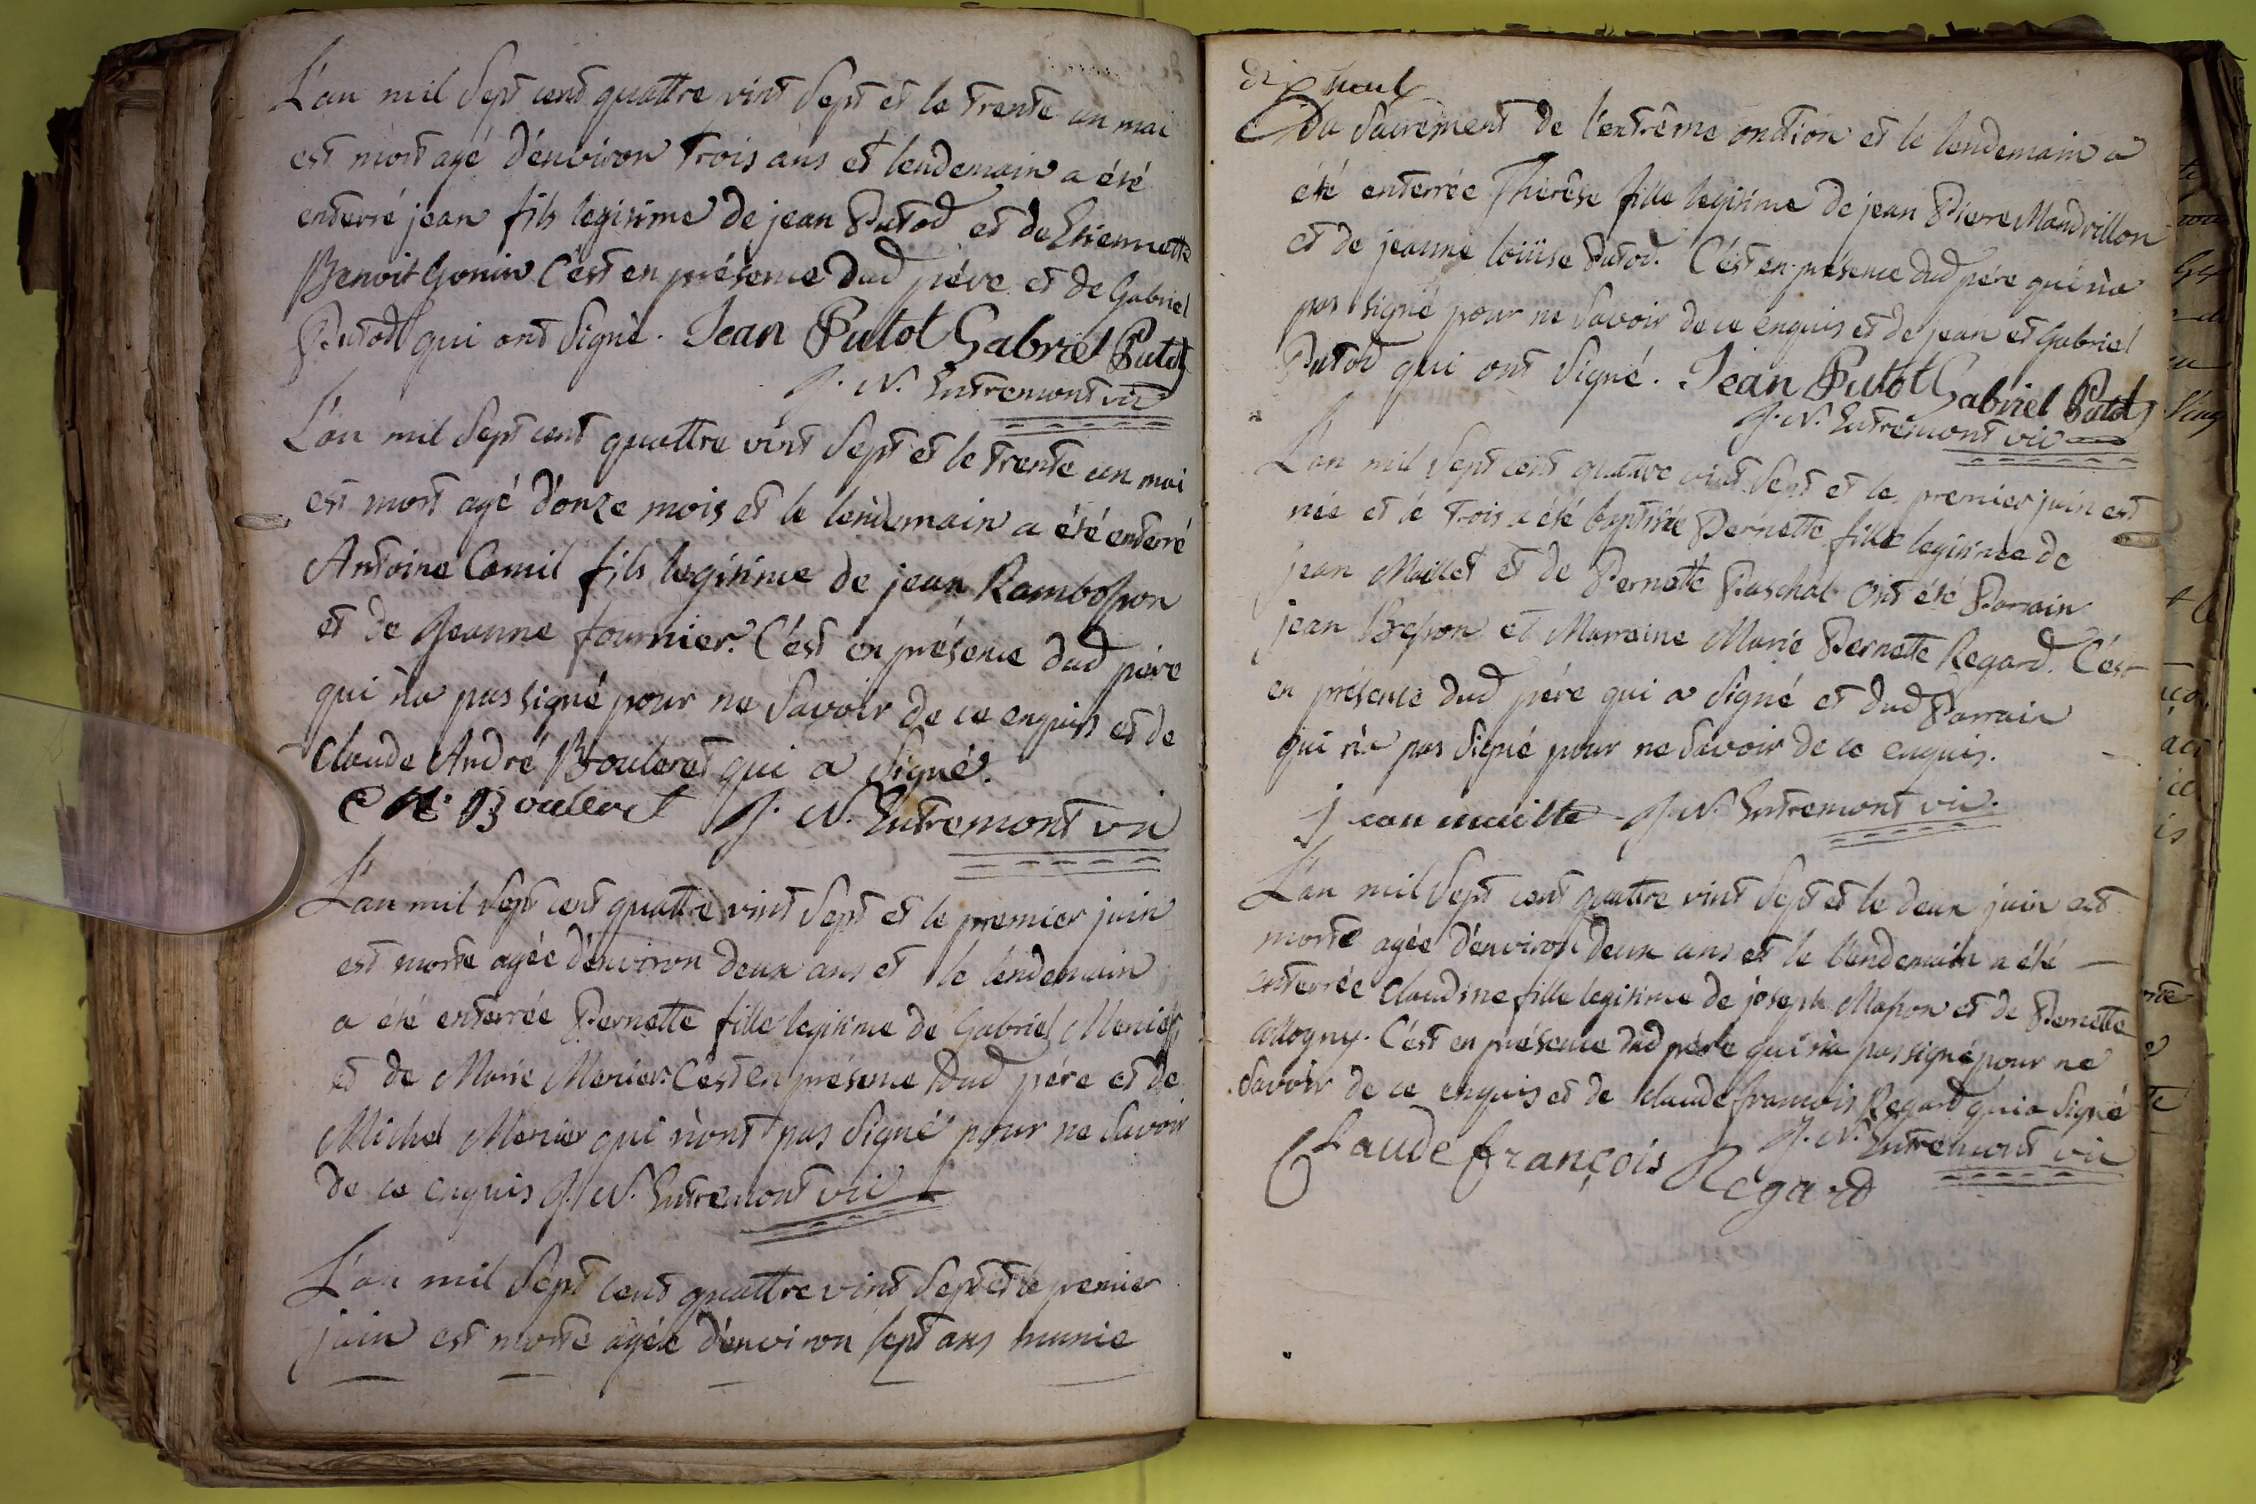 L'an mil sept cent quattre vint sept et le trente un mai
est mort agé d'environ trois ans et lendemain a été
enterré jean fils legitime de jean Putod et de Etiennette
Benoit Gonin C'est en présence dud pére et de Gabriel
Putod qui ont signé. Jean Putot Gabriel Putot
J. N. Entremont vic
L'an mil sept cent quattre vint sept et le trente un mai
est mort agé d'onze mois et le lendemain a été enterré
Antoine Camil fils legitime de jean Rambosson
et de Jeanne fournier. C'est en présence dud pére
qui n'a pas signé pour ne savoir de ce enquis et de
Claude André Bouleret qui a signé.
C A Bouleret J. N. Entremont vic
L'an mil sept cent quattre vint sept et le premier juin
est morte agée d'environ deux ans et le lendemain
a été enterrée Pernette fille legitime de Gabriel Menier
et de Marie Menier. C'est en présence dud pére et de
Michel Menier qui n'ont pas signé pour ne savoir
de ce enquis J. N. Entremont vic
L'an mil sept cent quattre vint sept et le premier
juin est morte agée d'environ sept ans munie
dix huit
Du sacrement de l'extrême onction et le lendemain a
été enterrée Thérèse fille legitime de jean Pierre Mandrillon
et de jeanne loüise Putod. C'est en présence dud pére qui n'a
pas signé pour ne savoir de ce enquis et de jean et Gabriel
Putod qui ont signé. Jean Putot Gabriel Putot
J. N. Entremont vic
L'an mil sept cent quattre vint sept et le premier juin est
née et le trois a été baptisée Pernette fille legitime de
jean Maillet et de Pernette Paschal ont été Parrain
jean Besson et Marraine Marie Pernette Regard. C'est
en présence dud pére qui a signé et dud Parrain
qui n'a pas signé pour ne savoir de ce enquis.
jean J. N. Entremont vic.
L'an mil sept cent quattre vint sept et le deux juin est
morte agée d'environ deux ans et le lendemain a été
enterrée Claudine fille legitime de joseph Masson et de Pernette
allogny. C'est en présence dud pére qui n'a pas signé pour ne
savoir de ce enquis et de claude francois Regard qui a signé
J. N. Entremont vic
Claude françois Regard